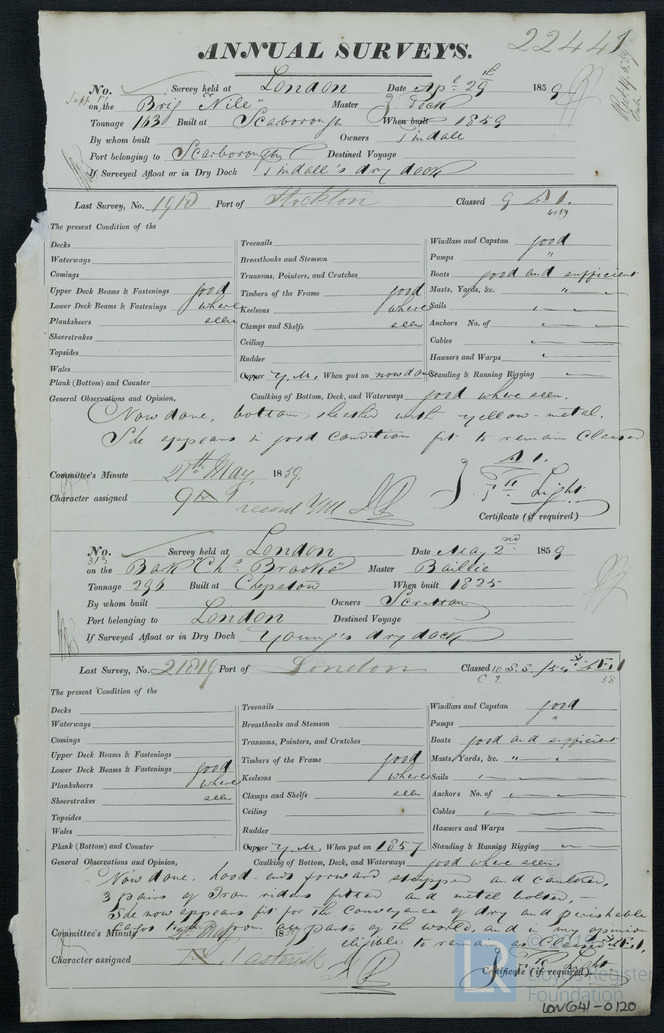 22441
ANNUAL SURVEYS.
No. Survey held at London Date Apl 29th 1859
on the Brig "Nile" Master Peck
Tonnage 163 Built at Scarborough When built 1859
By whom built Owners Tindall
Port belonging to Scarborough Destined Voyage
If Surveyed Afloat or in Dry Dock Tindall's dry dock
Last Survey, No. 1918 Port of Stockton Classed 9 A 1.
The present Condition of the
Decks Treenails Windlass and Capstan good
Waterways Breasthooks and Stemson Pumps "
Comings Transoms, Pointers, and Crutches Boats good and sufficient
Upper Deck Beams & Fastenings good Timbers of the Frame good Masts, Yards, &c. "
Lower Deck Beams & Fastenings where Keelsons where Sails
Planksheers seen Clamps and Shelfs seen Anchors No. of
Sheerstrakes Ceiling Cables
Topsides Rudder Hawsers and Warps
Wales Copper Y.M. When put on now done Standing & Running Rigging
Plank (Bottom) and Counter
General Observations and Opinion, Caulking of Bottom, Deck, and Waterways good where seen.
Now done, bottom sheathed with yellow-metal.
She appears in good condition fit to remain Classed
A 1.
Committee's Minute May, 1859.
Character assigned 9 A 1 record YM Light
Certificate (if required)
No. Survey held at London Date May 2nd 1859
313
on the Bark "Chs Brooke" Master Baillie
Tonnage 296 Built at Chepstow When built 1825
By whom built Owners Scrutton
Port belonging to London Destined Voyage
If Surveyed Afloat or in Dry Dock Young's dry dock
Last Survey, No. 21819 Port of London Classed
The present Condition of the
Decks Treenails Windlass and Capstan good
Waterways Breasthooks and Stemson Pumps "
Comings Transoms, Pointers, and Crutches Boats good and sufficient
Upper Deck Beams & Fastenings Timbers of the Frame good Masts, Yards, &c. "
Lower Deck Beams & Fastenings good Keelsons where Sails
Planksheers where Clamps and Shelfs seen Anchors No. of
Sheerstrakes seen Ceiling Cables
Topsides Rudder Hawsers and Warps
Wales Copper Y.M. When put on 1857 Standing & Running Rigging
Plank (Bottom) and Counter
General Observations and Opinion, Caulking of Bottom, Deck, and Waterways good where seen.
Now done, hood-ends forward stripped and caulked,
3 pairs of Iron riders fitted and metal bolted.
She now appears fit for the conveyance of dry and perishable
from all parts of the world, and in my opinion
eligible to remain as Classed
Committee's Minute May 1859
Character assigned
Light
Certificate (if required)
LR
Lloyd's Register
Foundation
LON641-0120